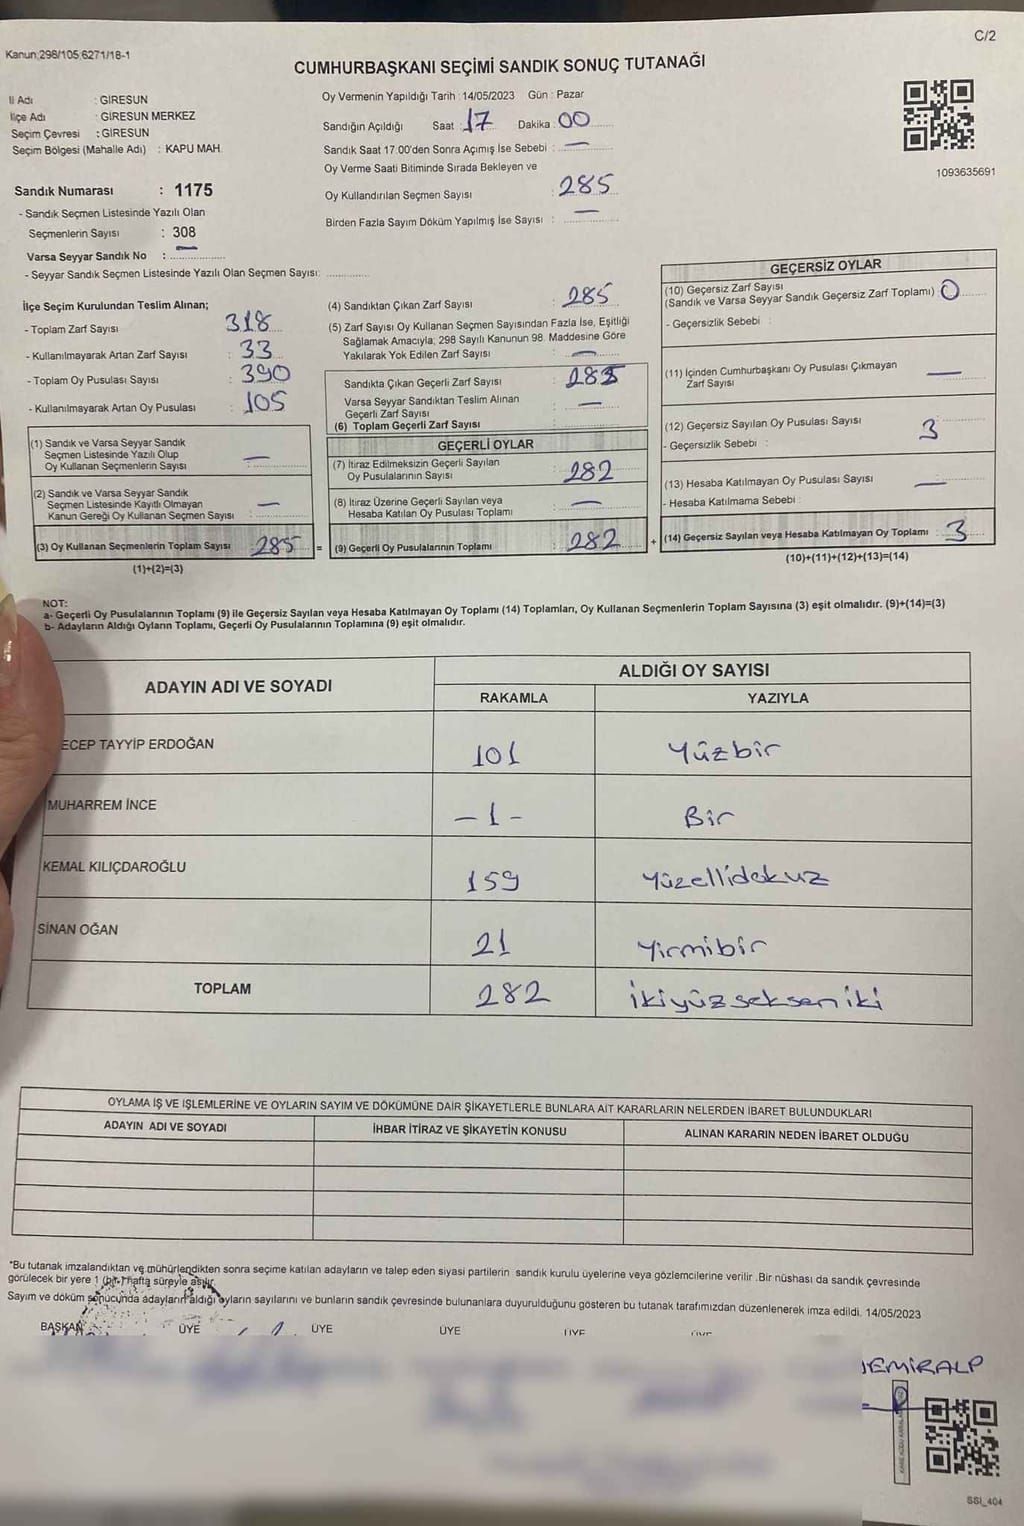 Kanun:298/105,6271/18-1
C/2
CUMHURBAŞKANI SEÇİMİ SANDIK SONUÇ TUTANAĞI
İl Adı : GİRESUN
İlçe Adı : GİRESUN MERKEZ
Seçim Çevresi : GİRESUN
Seçim Bölgesi (Mahalle Adı) : KAPU MAH.
Oy Vermenin Yapıldığı Tarih : 14/05/2023 Gün : Pazar
Sandığın Açıldığı Saat : 17 Dakika : 00
Sandık Saat 17.00'den Sonra Açımış İse Sebebi : —
Oy Verme Saati Bitiminde Sırada Bekleyen ve
Oy Kullandırılan Seçmen Sayısı : 285
Birden Fazla Sayım Döküm Yapılmış İse Sayısı : —
1093635691
Sandık Numarası : 1175
- Sandık Seçmen Listesinde Yazılı Olan
Seçmenlerin Sayısı : 308
Varsa Seyyar Sandık No : —
- Seyyar Sandık Seçmen Listesinde Yazılı Olan Seçmen Sayısı:
İlçe Seçim Kurulundan Teslim Alınan;
- Toplam Zarf Sayısı : 318
- Kullanılmayarak Artan Zarf Sayısı : 33
- Toplam Oy Pusulası Sayısı : 390
- Kullanılmayarak Artan Oy Pusulası : 105
(1) Sandık ve Varsa Seyyar Sandık
Seçmen Listesinde Yazılı Olup
Oy Kullanan Seçmenlerin Sayısı : —
(2) Sandık ve Varsa Seyyar Sandık
Seçmen Listesinde Kayıtlı Olmayan
Kanun Gereği Oy Kullanan Seçmen Sayısı : —
(3) Oy Kullanan Seçmenlerin Toplam Sayısı : 285 =
(1)+(2)=(3)
(4) Sandıktan Çıkan Zarf Sayısı : 285
(5) Zarf Sayısı Oy Kullanan Seçmen Sayısından Fazla İse, Eşitliği
Sağlamak Amacıyla; 298 Sayılı Kanunun 98. Maddesine Göre
Yakılarak Yok Edilen Zarf Sayısı : —
Sandıkta Çıkan Geçerli Zarf Sayısı : 285
Varsa Seyyar Sandıktan Teslim Alınan
Geçerli Zarf Sayısı : —
(6) Toplam Geçerli Zarf Sayısı
GEÇERLİ OYLAR
(7) İtiraz Edilmeksizin Geçerli Sayılan
Oy Pusulalarının Sayısı : 282
(8) İtiraz Üzerine Geçerli Sayılan veya
Hesaba Katılan Oy Pusulası Toplamı : —
(9) Geçerli Oy Pusulalarının Toplamı : 282 +
GEÇERSİZ OYLAR
(10) Geçersiz Zarf Sayısı
(Sandık ve Varsa Seyyar Sandık Geçersiz Zarf Toplamı) : 0
- Geçersizlik Sebebi :
(11) İçinden Cumhurbaşkanı Oy Pusulası Çıkmayan
Zarf Sayısı : —
(12) Geçersiz Sayılan Oy Pusulası Sayısı : 3
- Geçersizlik Sebebi :
(13) Hesaba Katılmayan Oy Pusulası Sayısı : —
- Hesaba Katılmama Sebebi :
(14) Geçersiz Sayılan veya Hesaba Katılmayan Oy Toplamı : 3
(10)+(11)+(12)+(13)=(14)
NOT:
a- Geçerli Oy Pusulalarının Toplamı (9) ile Geçersiz Sayılan veya Hesaba Katılmayan Oy Toplamı (14) Toplamları, Oy Kullanan Seçmenlerin Toplam Sayısına (3) eşit olmalıdır. (9)+(14)=(3)
b- Adayların Aldığı Oyların Toplamı, Geçerli Oy Pusulalarının Toplamına (9) eşit olmalıdır.
ADAYIN ADI VE SOYADI
ALDIĞI OY SAYISI
RAKAMLA YAZIYLA
ECEP TAYYİP ERDOĞAN 101 Yüzbir
MUHARREM İNCE – 1 – Bir
KEMAL KILIÇDAROĞLU 159 Yüzellidokuz
SİNAN OĞAN 21 Yirmibir
TOPLAM 282 İkiyüzsekseniki
OYLAMA İŞ VE İŞLEMLERİNE VE OYLARIN SAYIM VE DÖKÜMÜNE DAİR ŞİKAYETLERLE BUNLARA AİT KARARLARIN NELERDEN İBARET BULUNDUKLARI
ADAYIN ADI VE SOYADI İHBAR İTİRAZ VE ŞİKAYETİN KONUSU ALINAN KARARIN NEDEN İBARET OLDUĞU
*Bu tutanak imzalandıktan ve mühürlendikten sonra seçime katılan adayların ve talep eden siyasi partilerin sandık kurulu üyelerine veya gözlemcilerine verilir .Bir nüshası da sandık çevresinde
görülecek bir yere 1 (bir) hafta süreyle asılır.
Sayım ve döküm sonucunda adayların aldığı oyların sayılarını ve bunların sandık çevresinde bulunanlara duyurulduğunu gösteren bu tutanak tarafımızdan düzenlenerek imza edildi. 14/05/2023
BAŞKAN ÜYE ÜYE ÜYE ÜYE ÜYE
EMİRALP
SSI_404